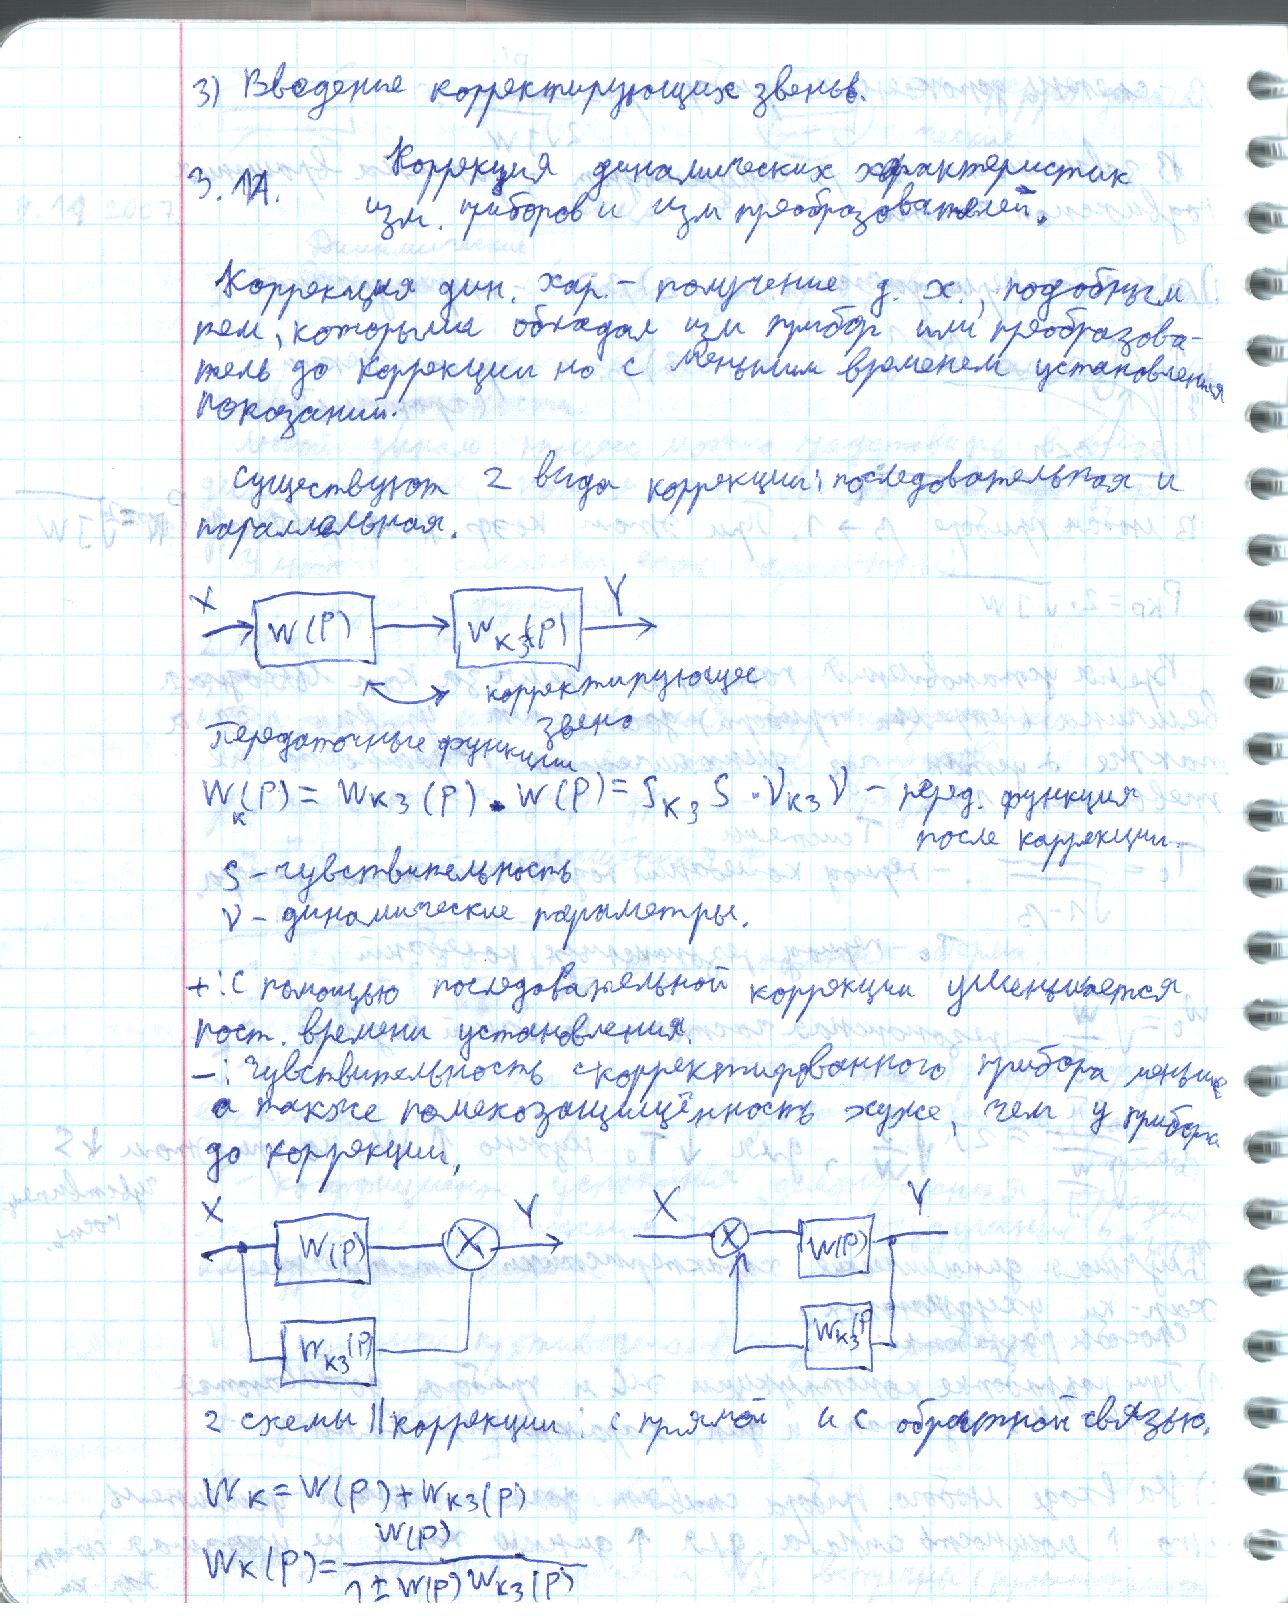 3) Введение корректирующих звеньв.
3.1А. Коррекция динамических характеристик
изм. приборов и изм преобразователей.
Коррекция дин. хар. – получение д. х., подобным
тем, которыми обладал изм прибор или преобразова-
тель до коррекции но с меньшим временем установления
показаний.
Существуют 2 вида коррекции: последовательная и
параллельная.
X W(P) Wкз(P) Y
корректирующее
звено
Передаточные функции
Wк(P) = Wкз(P) · W(P) = Sкз S · Vкз V – перед. функция
после каррекции.
S – чувствительность
V – динамические параметры.
+: С помощью последовательной коррекции уменьшается
пост. времени установления.
–: Чувствительность скорректированного прибора меньше
а также помехозащищённость хуже, чем у прибора
до коррекции.
X W(P) X Y X X W(P) Y
Wкз(P) Wкз(P)
2 схемы || коррекции: с прямой и с обратной связью.
Wк = W(P) + Wкз(P)
Wк(P) = W(P) / 1 ± W(P) Wкз(P)